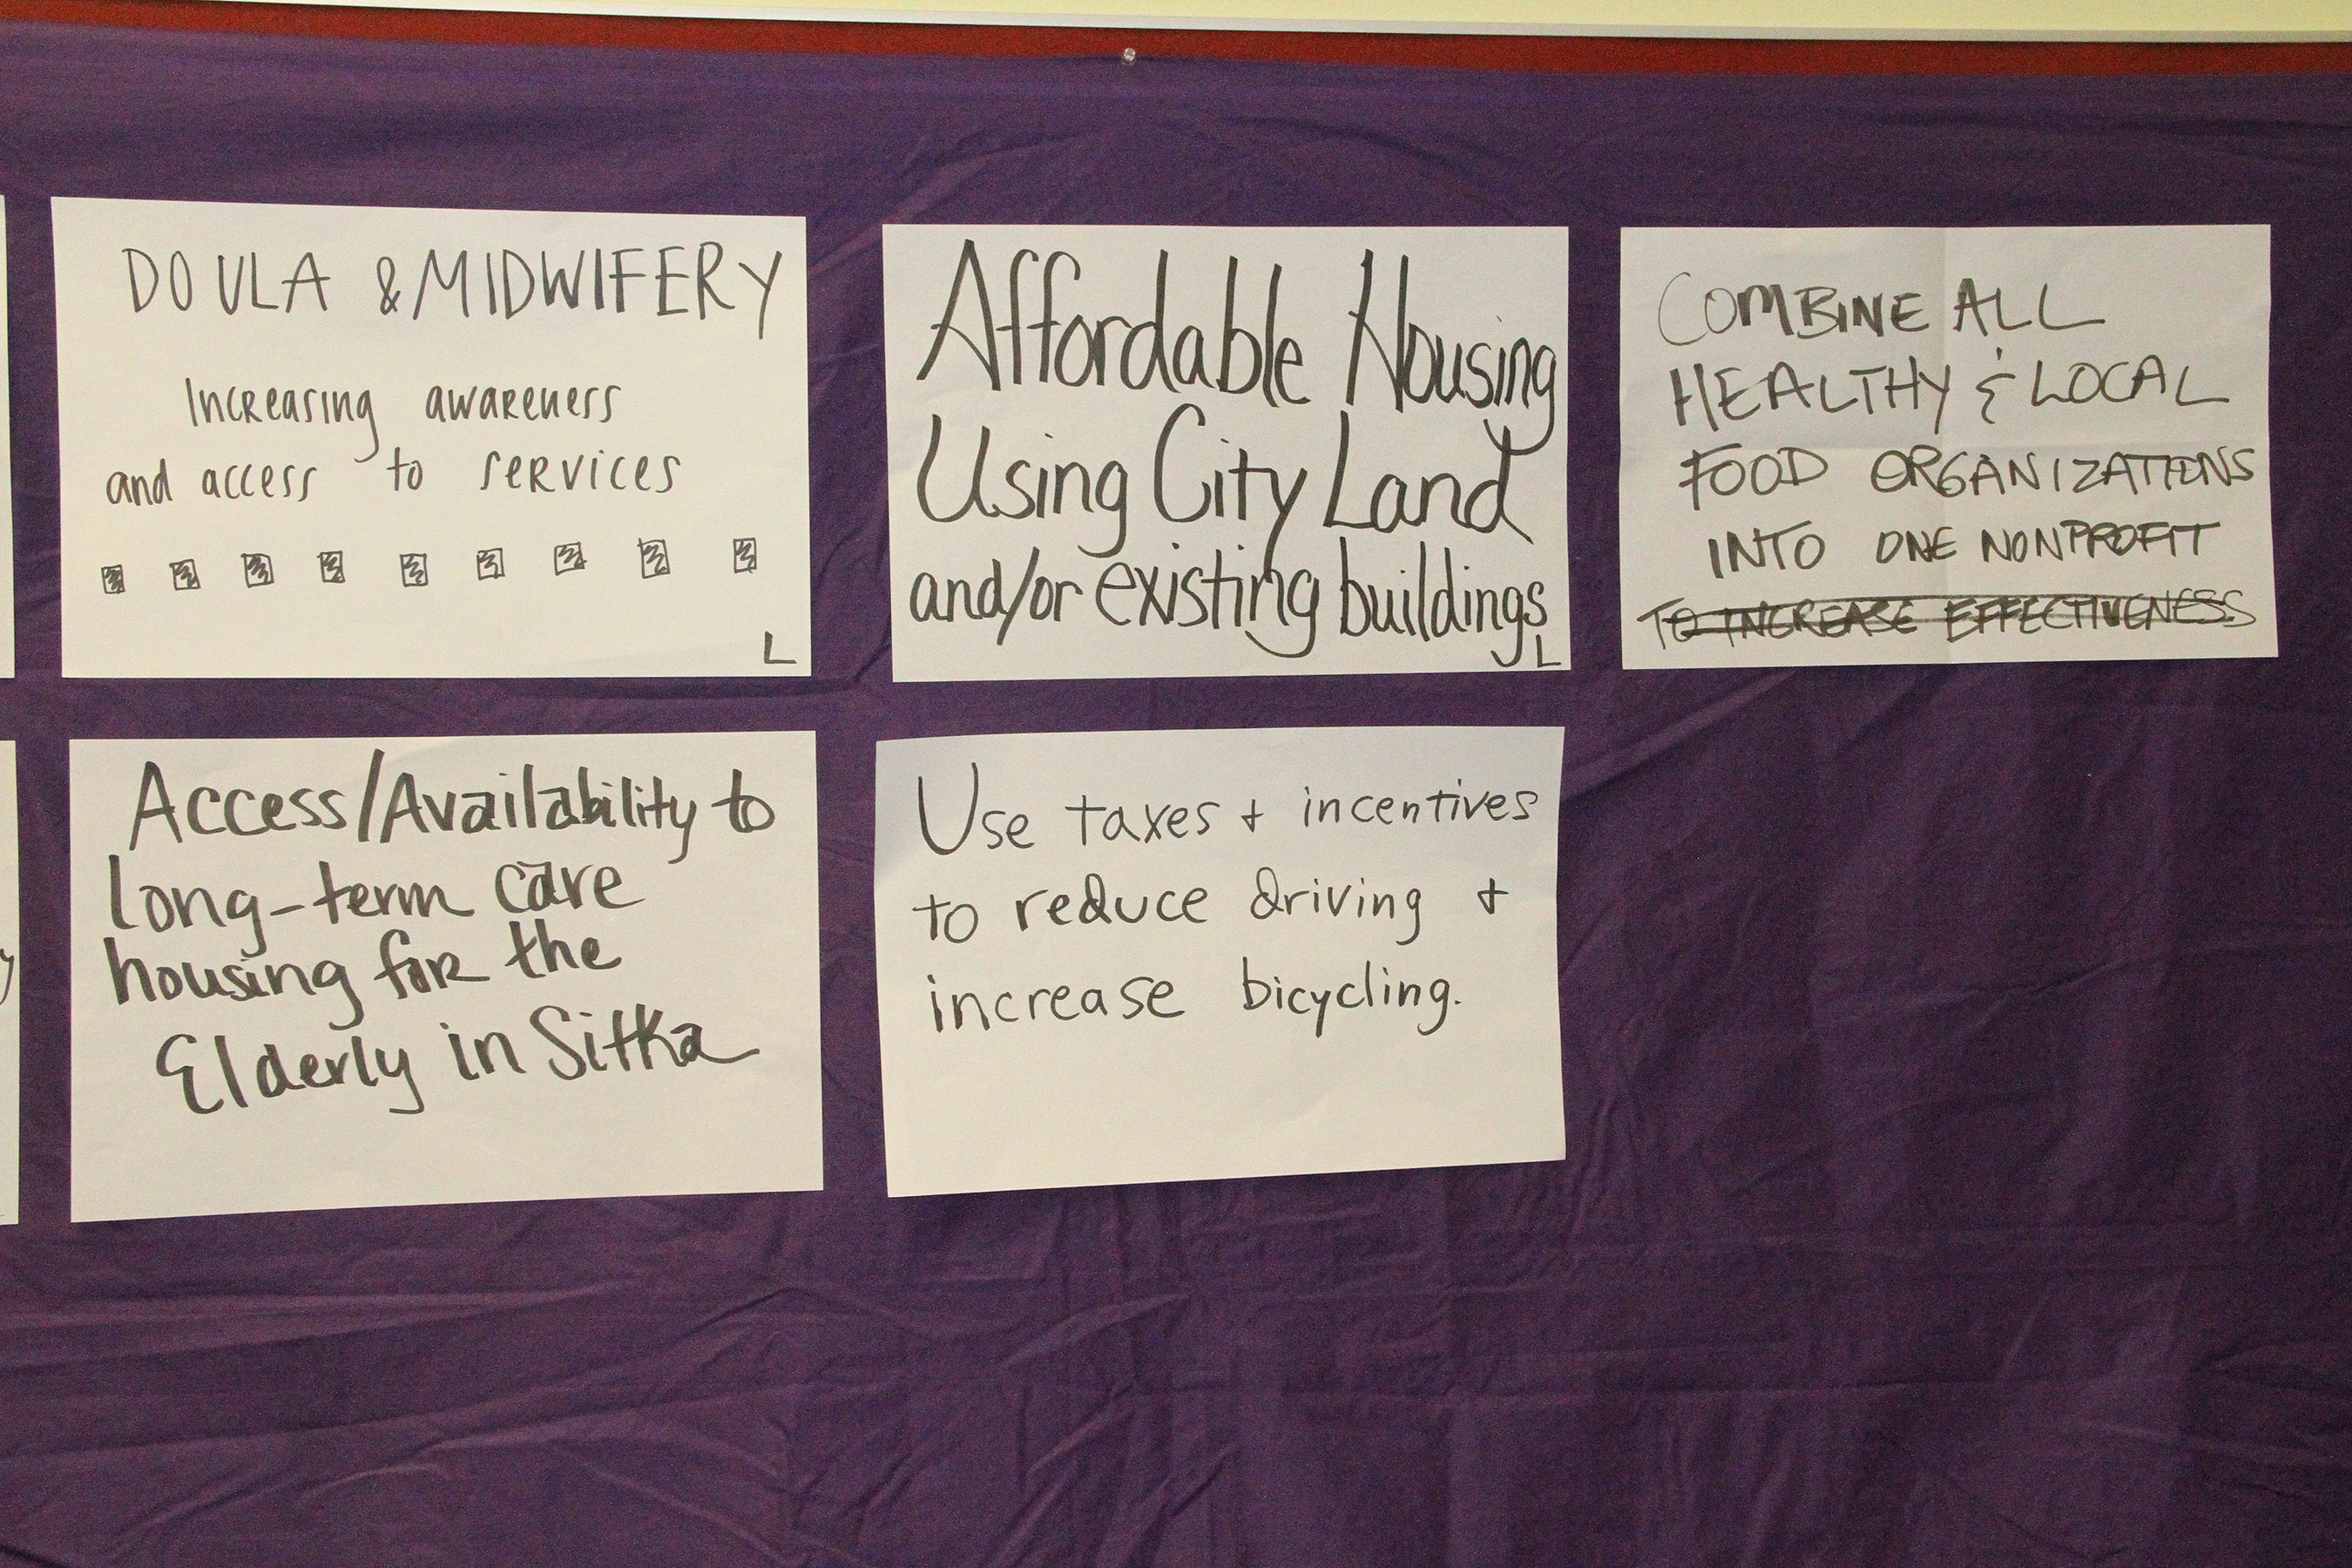 DOULA & MIDWIFERY
Increasing awareness
and access to services
L
Affordable Housing
Using City Land
and/or existing buildings
L
COMBINE ALL
HEALTHY & LOCAL
FOOD ORGANIZATIONS
INTO ONE NONPROFIT
TO INCREASE EFFECTIVENESS
Access/Availability to
long-term care
housing for the
Elderly in Sitka
Use taxes + incentives
to reduce driving +
increase bicycling.